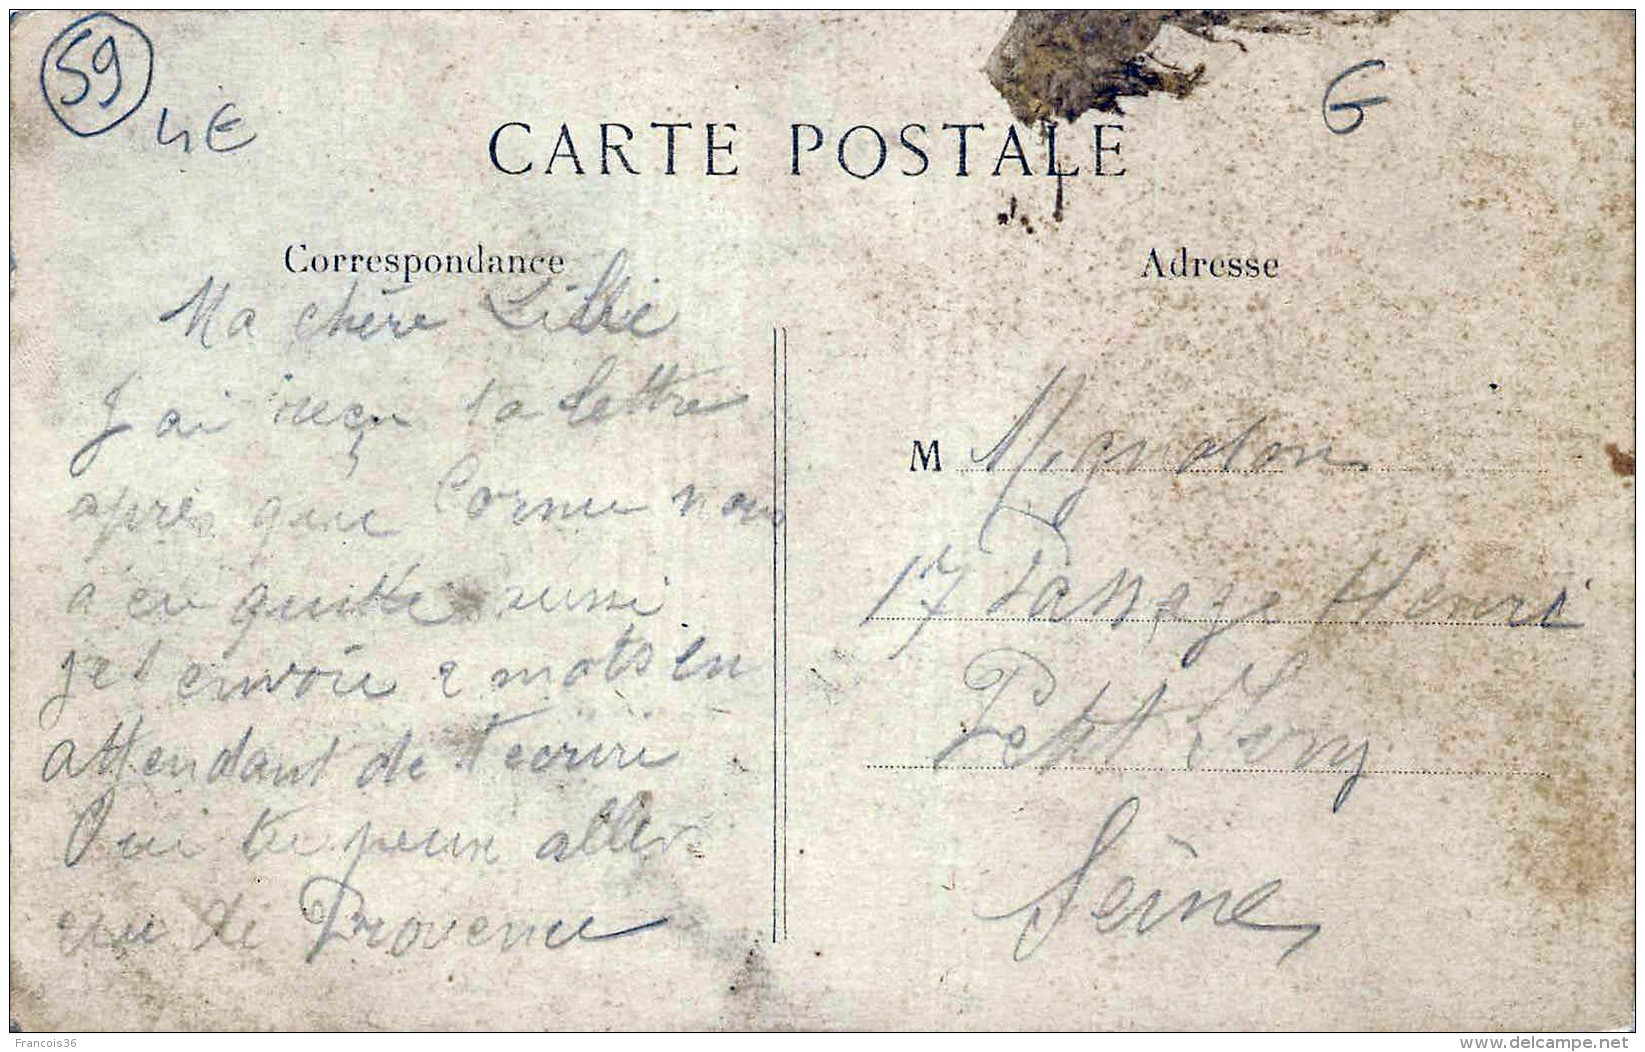 59
4€
G
CARTE POSTALE
Correspondance
Adresse
Ma chère Lillie
J ai reçu ta lettre
après que Cornu nous
a eu quitté aussi
je t envoie 2 mots en
attendant de t ecrire
Oui tu peux aller
rue de Provence
M Mignolon
17 Passage Henri
Petit Ivry
Seine
Francois36
www.delcampe.net